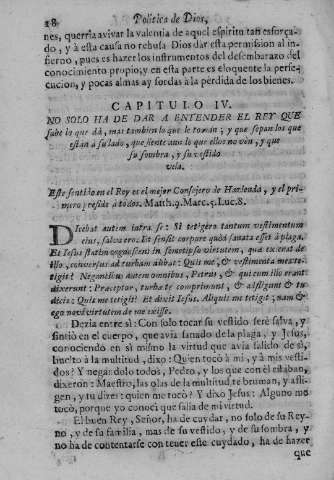 28 Politica de Dios,
nes, querria avivar la valentia de aquel espiritu tan esforça-
do, y à esta causa no rehusa Dios dar esta permission al in-
fierno, pues es hazer los instrumentos del desembarazo del
conocimiento propio; y en esta parte es eloquente la perse-
cucion, y pocas almas ay sordas à la pérdida de los bienes.
CAPITULO IV.
NO SOLO HA DE DAR A ENTENDER EL REY QUE
sabe lo que dà, mas tambien lo que le toman; y que sepan los que
estàn à su lado, que siente aun lo que ellos no vèn, y que
su sombra, y su vestido
vela.
Este sentido en el Rey es el mejor Consejero de Hazienda, y el pri-
mero preside à todos. Matth. 9. Marc. 5. Luc. 8.
DIcebat autem intra se: Si tetigero tantum vestimentum
eius, salva ero: Et sensit corpore quòd sanata esset à plaga.
Et Iesus statim cognoscens in semetipso virtutem, quæ exierat de
illo, conversus ad turbam aiebat: Quis me, & vestimenta mea te-
tigit? Negantibus autem omnibus, Petrus, & qui cum illo erant
dixerunt: Præceptor, turbæ te comprimunt, & affligunt & tu
dicis: Quis me tetigit? Et dixit Iesus. Aliquis me tetigit; nam &
ego novi virtutem de me exisse.
Dezia entre sì: Con solo tocar su vestido serè salva, y
sintiò en el cuerpo, que avia sanado de la plaga, y Jesus,
conociendo en sì mismo la virtud que avia salido de sì,
buelto à la multitud, dixo: Quien tocò à mi, y à mis vesti-
dos? Y negandolo todos, Pedro, y los que con èl estaban,
dixeron: Maestro, las olas de la multitud te bruman, y afli-
gen, y tu dizes: quien me tocò? Y dixo Jesus: Alguno me
tocò, porque yo conocì que salia de mi virtud.
El buen Rey, Señor, ha de cuydar, no solo de su Rey-
no, y de su familia, mas de su vestido, y de su sombra, y
no ha de contentarse con tener este cuydado, ha de hazer
que